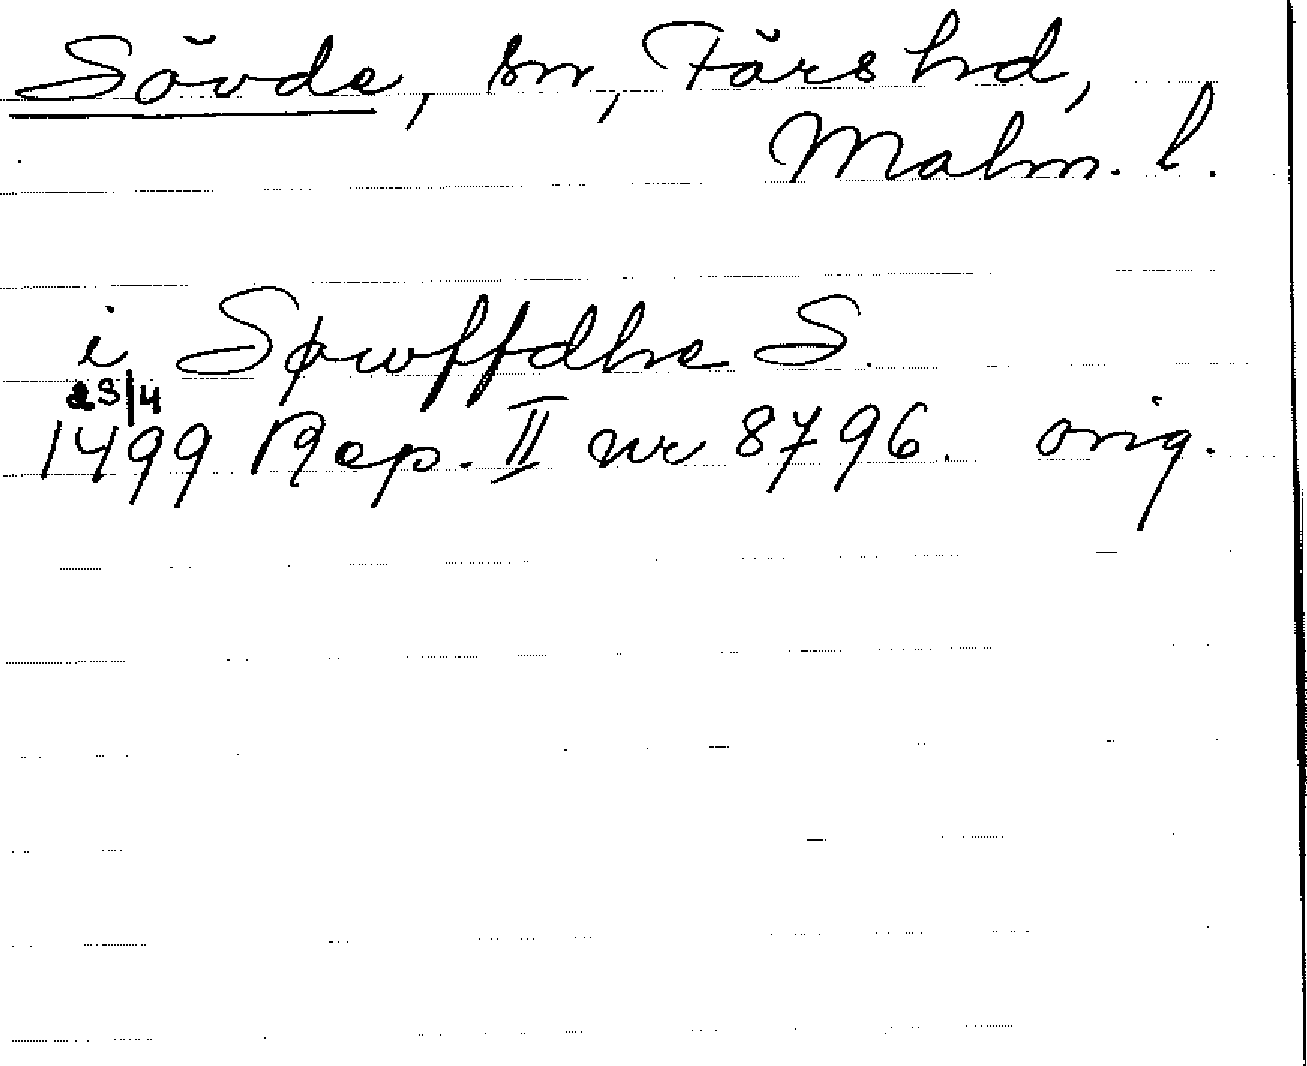 Sövde, sn, Färs hd,
Malm. l.
i Søwffdhe S.
23/4
1499 Rep. II nr 8796. orig.